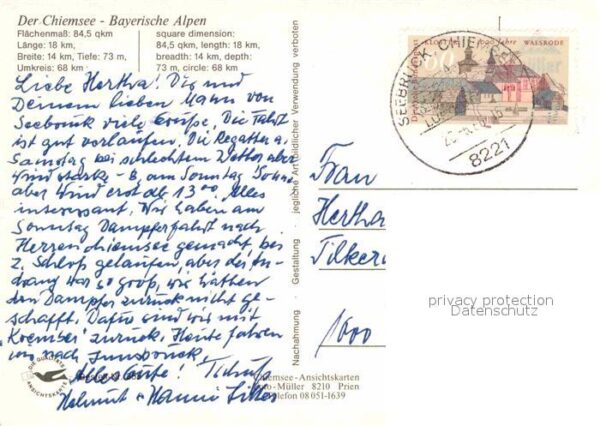 Der Chiemsee - Bayerische Alpen
Flächenmaß: 84,5 qkm
Länge: 18 km,
Breite: 14 km, Tiefe: 73 m,
Umkreis: 68 km
square dimension:
84,5 qkm, length: 18 km,
breadth: 14 km, depth:
73 m, circle: 68 km
Liebe Hertha! Dir und
Deinem lieben Mann von
Seebruck viele Grüße. Die Fahrt
ist gut verlaufen. Die Regatta a.
Samstag bei schlechtem Wetter aber
Windstärke - 6, am Sonntag Sonne
aber Wind erst ab 13 00. Alles
interessant. Wir haben am
Sonntag Dampferfahrt nach
Herrenchiemsee gemacht, bei
z. Schloß gelaufen, aber der An-
drang war so groß, wir hätten
den Dampfer zurück nicht ge-
schafft. Dafür sind wir mit
zurück. Heute fahren
wir nach Innsbruck.
Alles Gute!
Helmut + Hanni
DIE QUALITÄTS
ANSICHTSKARTE
Nachahmung · Gestaltung · jegliche Art bildlicher Verwendung verboten
Chiemsee-Ansichtskarten
Müller 8210 Prien
Telefon 08 051-1639
WALSRODE
SEEBRUCK, CHIEMSEE
8221
Frau
Hertha
1000
privacy protection
Datenschutz